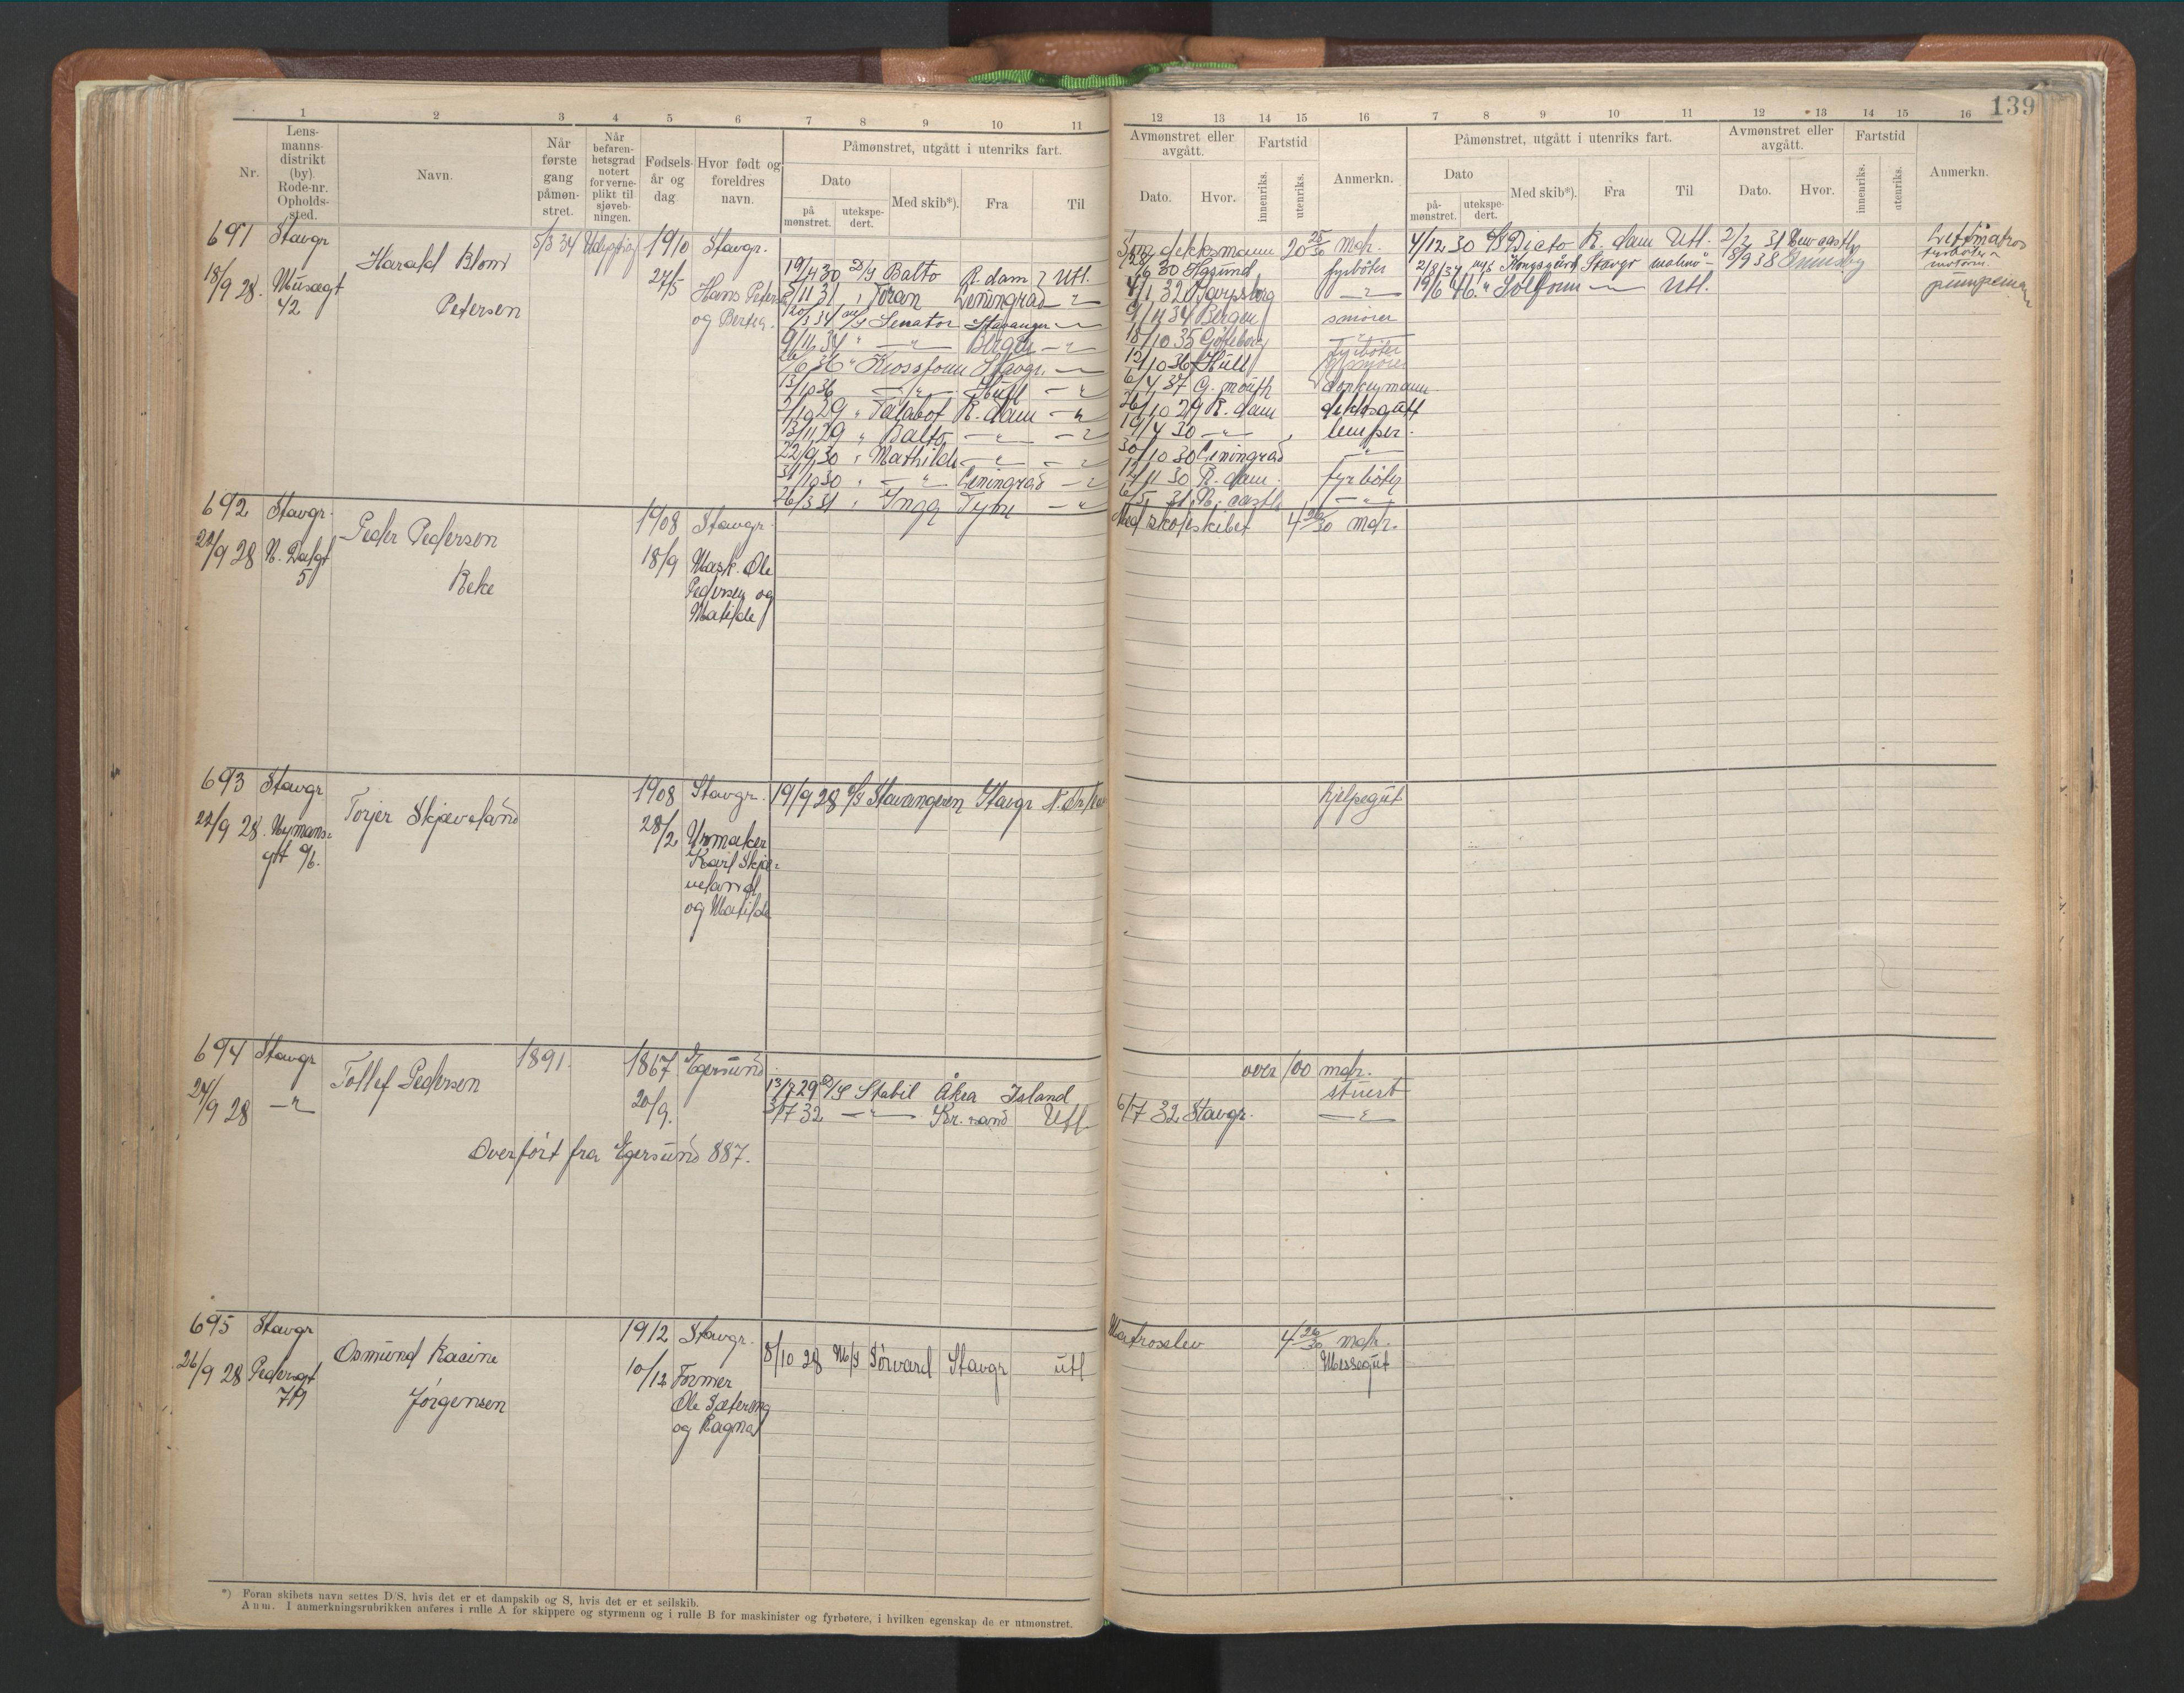 139
1 2 3 4 5 6 7 8 9 10 11 12 13 14 15 16 7 8 9 10 11 12 13 14 15 16
Nr.
Lens-
manns-
distrikt
(by).
Rode-nr.
Opholds-
sted.
Navn.
Når
første
gang
påmøn-
stret.
Når
befaren-
hetsgrad
notert
for verne-
plikt til
sjøveb-
ningen.
Fødsels-
år og
dag
Hvor født og
foreldres
navn.
Påmønstret, utgått i utenriks fart.
Dato
på
mønstret.
utekspe-
dert.
Med skib*).
Fra
Til
Avmønstret eller
avgått.
Dato.
Hvor.
Fartstid
innenriks.
utenriks.
Anmerkn.
Påmønstret, utgått i utenriks fart.
Dato
på-
mønstret.
utekspe-
dert.
Med skib*).
Fra
Til
Avmønstret eller
avgått.
Dato.
Hvor.
Fartstid
innenriks.
utenriks.
Anmerkn.
691 Stavgr
18/9 28. Musegt
42
Harald Blom
Petersen
5/3 34
1910
27/5
Stavgr.
Hans Peters
og Berta.
19/4 30 D/S Balto R.dam Utl.
31 " Toran Leningrad — " —
34 M/S Senator Stavanger — " —
9/11 34 " — " — Bergen — " —
36 " Krossfonn Stavgr. — " —
13/10 36 — " — Hull — " —
29 " Talabot R. dam — " —
13/11 29 " Balto — " — — " —
22/9 30 " Mathilde — " — — " —
31/10 30 " — " — Leningrad — " —
26/3 31 " Inga Tyne — " —
Som dekksmann 20 25/30 mdr.
30 fyrbøter
32 Sarpsborg — " —
34 Bergen smører
18/10 35 Gøteborg fyrbøter
12/10 36 Hull smører
6/4 37 G. mouth donkeymann
26/10 29 R. dam dekksgutt
19/4 30 — " — lemper.
30/10 30 Leningrad — " —
12/11 30 R. dam. fyrbøter
31 N. castle — " —
4/12 30 D/S Dicto R. dam Utl. 2/2 31 Newcastle Lettmatros
Kongsgård Stavgr malmø 8/9 38 fyrbøter
motorm.
19/6 46. " Solfonn — " — Utl. pumpemann
692 Stavgr.
22/9 28 N. Dalgt
5
Peder Pedersen
Reke
1908
18/9
Stavgr.
Mask. Ole
Pedersen og
Matilde
Med skoleskibet 4 26/30 mdr.
693 Stavgr
22/9 28. Nymans-
gt 96.
Torjer Skjæveland
1908
28/2
Stavgr.
Urmaker
Karl Skjæ-
veland
og Matilde
19/9 28 D/S Stavangeren Stavgr
hjelpegut
694 Stavgr
24/9 28 — " —
Tollef Pedersen
1891.
1867
20/9.
Egersund.
Overført fra Egersund 887.
13/7 29 D/S Stabil Åkra Island
3/7 32 — " — Kr. sand Utl.
over 100 mdr.
stuert
6/7 32 Stavgr. — " —
695 Stavgr
26/9 28 Pedersgt
79
Osmund Racine
Jørgensen
1912
10/12
Stavgr.
Former
Ole Sætersng
og Ragna
8/10 28 M/S Sørvard Stavgr utl
Matroselev 4 26/30 mdr.
Messegut
*) Foran skibets navn settes D/S, hvis det er et dampskib og S, hvis det er et seilskib.
Anm. I anmerkningsrubrikken anføres i rulle A for skippere og styrmenn og i rulle B for maskinister og fyrbøtere, i hvilken egenskap de er utmønstret.